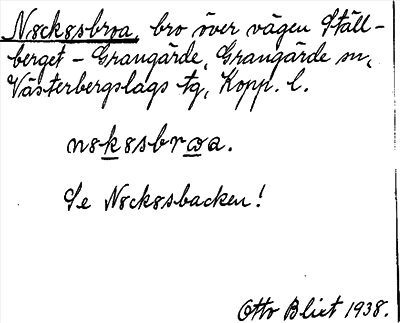 Nockosbroa, bro över vägen Ställ-
berget - Grangärde, Grangärde sn,
Västerbergslags tg, Kopp. l.
Se Nockosbacken!
Otto Blixt 1938.